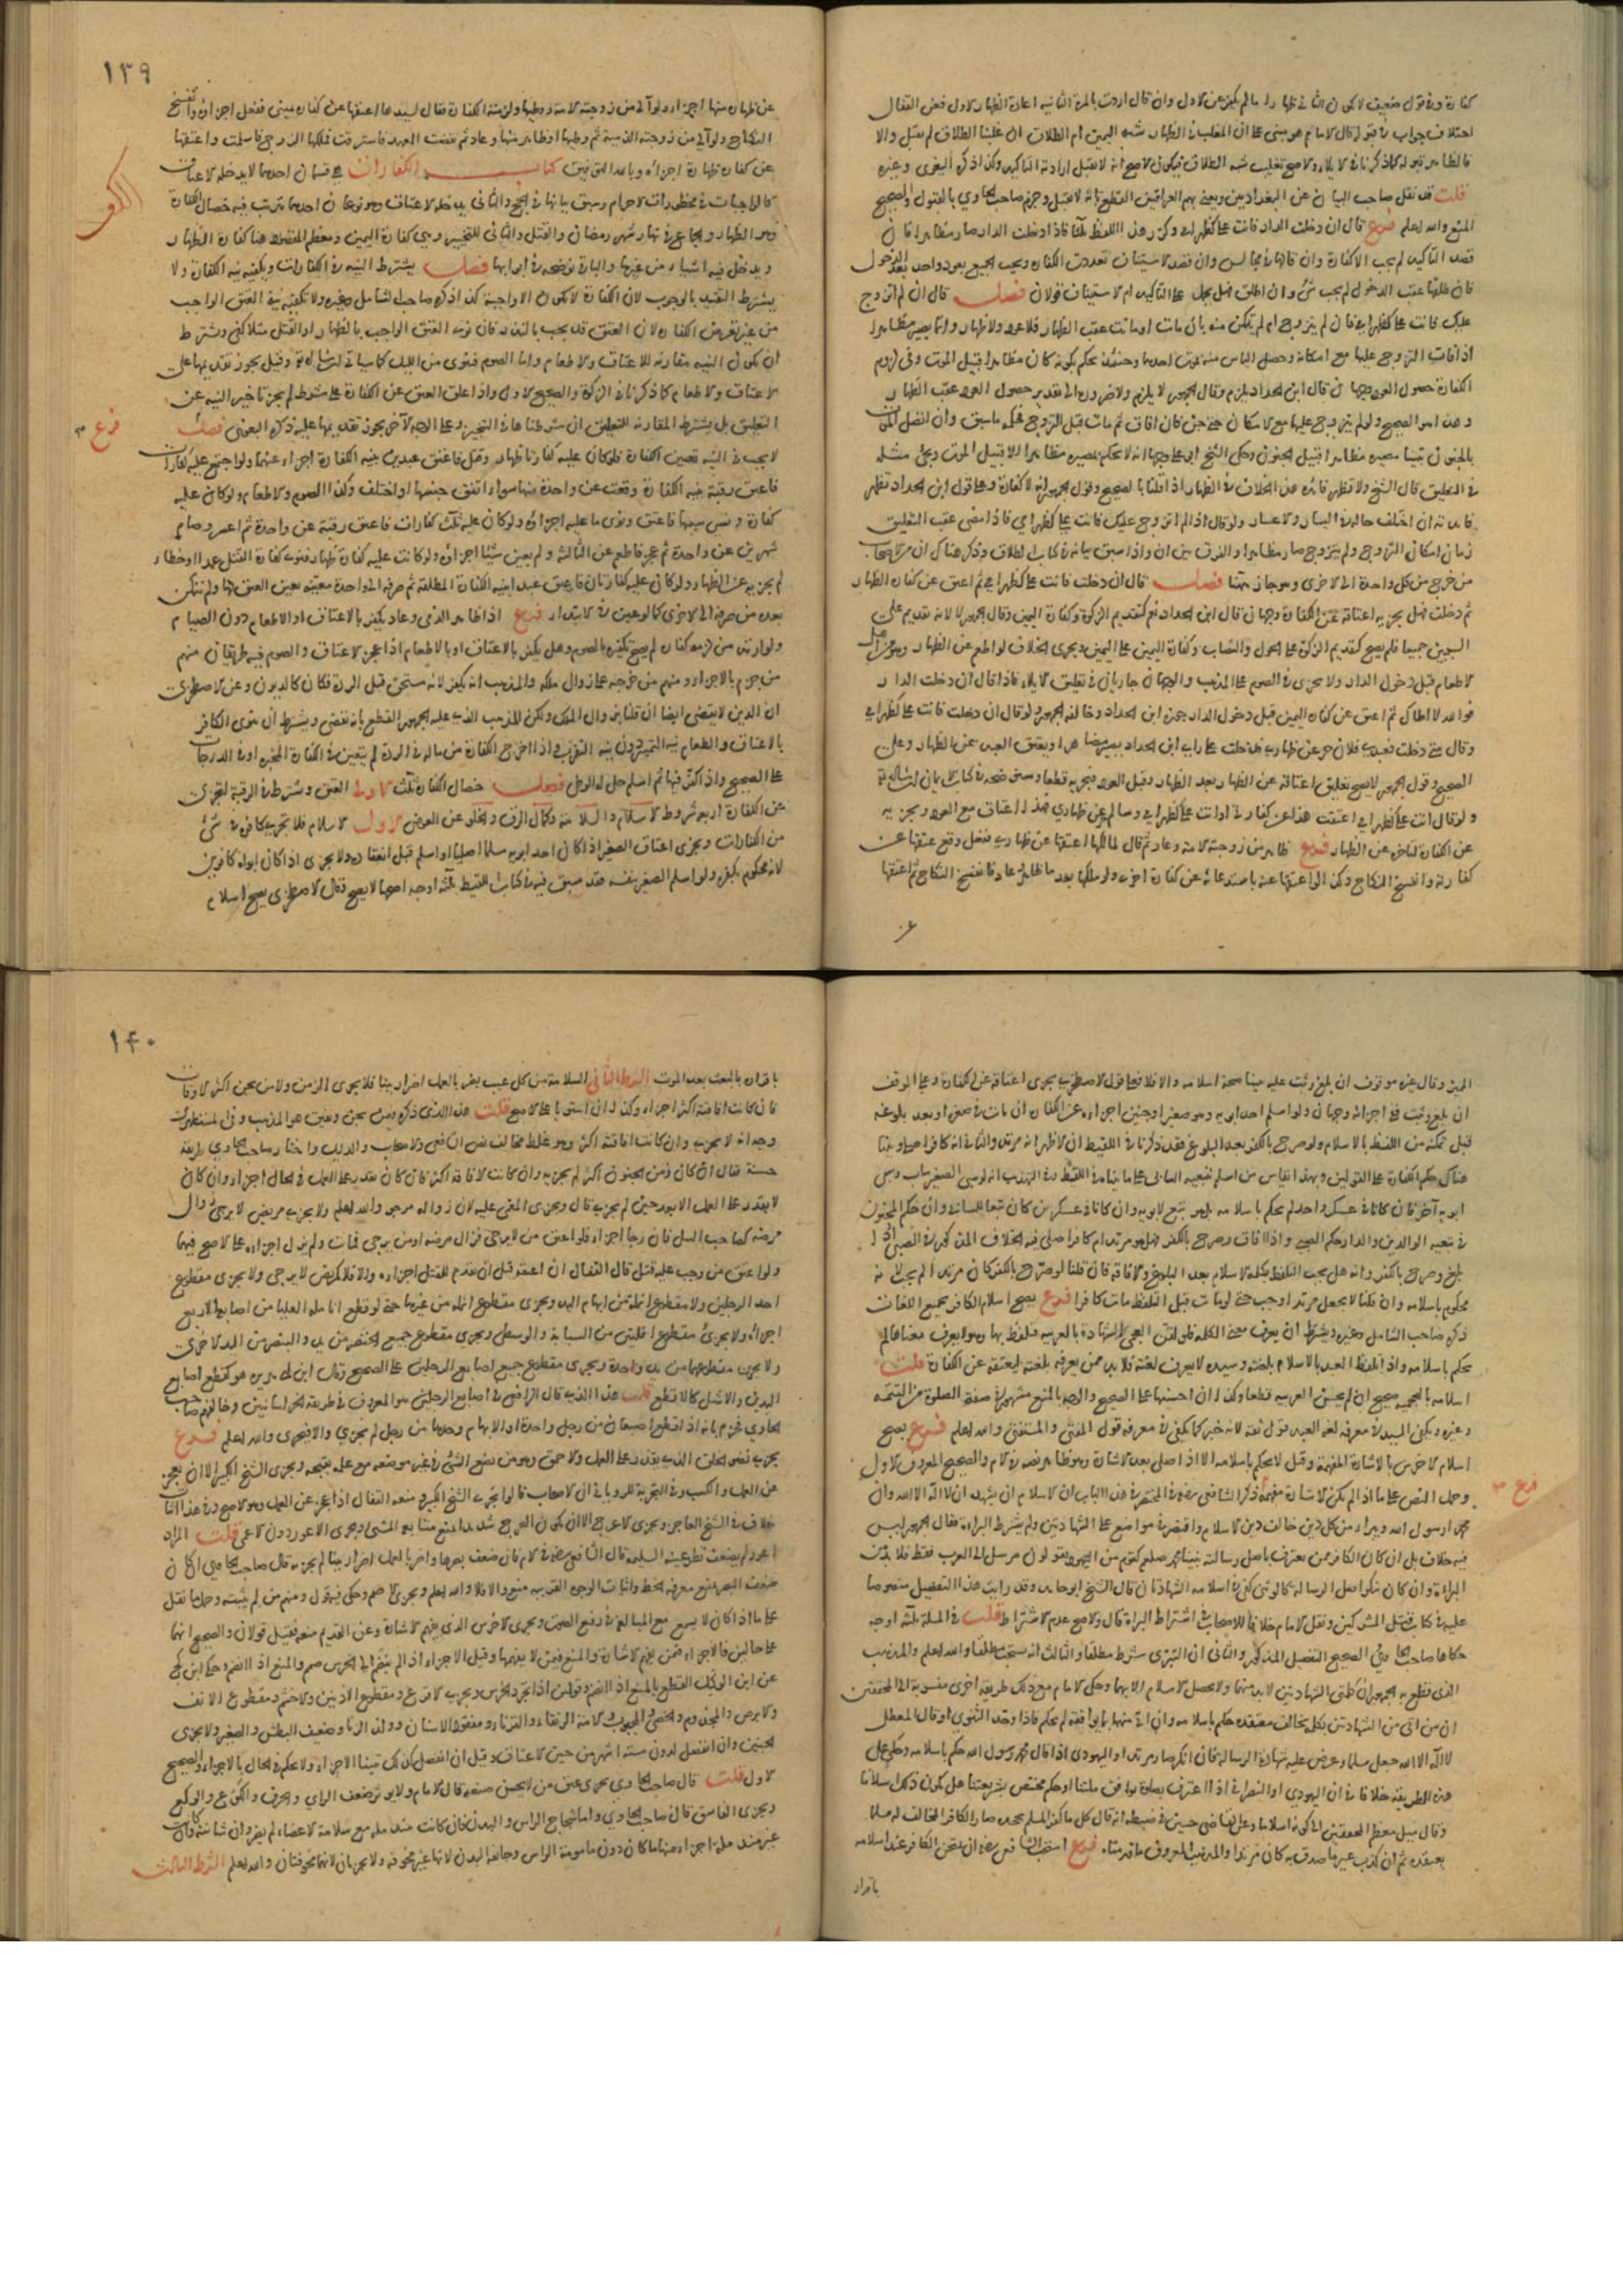 كفارة وفي قول ضعيف لا يكون الثاني ظهارا ما لم يكفر عن الاول وان قال اردت بالمرة الثانية اعادة الظهار الاول فعن القفال
اختلاف جواب في قبوله قال الامام هو مبني على ان المغلب في الظهار شبه اليمين ام الطلاق ان غلبنا الطلاق لم يقبل والا
فالظاهر قبوله كما ذكرنا في الايلاء والاصح تغليب شبه الطلاق فيكون الاصح انه لا يقبل ارادة التاكيد وكذا ذكره البغوي وغيره
قلت قد نقل صاحب البيان عن البغداديين ويعني بهم العراقيين القطع بانه لا يقبل وجزم صاحب الحاوي بالقبول والصحيح
المنع والله اعلم فرع قال ان دخلت الدار فانت علي كظهر امي وكرر هذا اللفظ ثلثا فاذا دخلت الدار صار مظاهرا فان
قصد التاكيد لم يجب الا كفارة وان قالها في مجالس وان قصد الاستيناف تعددت الكفارة ويجب الجميع بعود واحد بعد الدخول
فان طلقها عقب الدخول لم يجب شئ وان اطلق فهل يحمل على التاكيد ام الاستيناف قولان فصل قال ان لم اتزوج
عليك فانت علي كظهر امي فان لم يتزوج
اذا فات التزوج عليها مع امكانه وحصل الياس منه بموت احدهما وحينئذ يحكم بكونه كان مظاهرا قبيل الموت وفي لزوم
الكفارة حصول العود وجهان قال ابن الحداد يلزم وقال الجمهور لا يلزم ولا ضرورة الى تقدير حصول العود عقب الظهار
وهذا هو الصحيح ولو لم يتزوج عليها مع الامكان حتى جن فان افاق ثم مات قبل التزوج فحكمه ما سبق وان اتصل الموت
بالجنون تبينا مصيره مظاهرا قبيل الجنون وحكى الشيخ ابو علي وجها انه لا يحكم بمصيره مظاهرا الا قبيل الموت ويجئ مثله
في التعليق قال الشيخ ولا تظهر فائدة هذا الخلاف في الظهار اذا قلنا بالصحيح وقول الجمهور انه لا كفارة وعلى قول ابن الحداد تظهر
فائدته ان اختلف حاله في اليسار والاعسار ولو قال اذا لم اتزوج عليك فانت علي كظهر امي فاذا مضى عقب التعليق
زمان امكان التزوج ولم يتزوج صار مظاهرا والفرق بين ان واذا سبق بيانه في كتاب الطلاق وذكر هناك ان من الاصحاب
من خرج من كل واحدة الى الاخرى وهو جار هنا فصل قال ان دخلت فانت علي كظهر امي ثم اعتق عن كفارة الظهار
ثم دخلت فهل يجزيه اعتاقه عن الكفارة وجهان قال ابن الحداد نعم كتقديم الزكوة وكفارة اليمين وقال الجمهور لا لانه تقديم على
السببين جميعا فلم يصح كتقديم الزكوة على الحول والنصاب وكفارة اليمين على اليمين ويجري الخلاف لو اطعم عن الظهار وهو من اهل
الاطعام قبل دخول الدار ولا يجزئ الصوم على المذهب والوجهان جاريان في تعليق الايلاء فاذا قال ان دخلت الدار
فوالله لا اطاك ثم اعتق عن كفارة اليمين قبل دخول الدار جوزه ابن الحداد وخالفه الجمهور ولو قال ان دخلت فانت علي كظهر امي
وقال متى دخلت فعبدي فلان حر عن ظهاري فدخلت على راي ابن الحداد يصير مظاهرا ويعتق العبد عن الظهار وعلى
الصحيح وقول الجمهور لا يصح تعليق اعتاقه عن الظهار بعد الظهار وقبل العود فيجزيه قطعا
عن الكفارة لتاخره عن الظهار فرع ظاهر من زوجته الامة وعاد ثم قال لمالكها اعتقها عن ظهاري ففعل وقع عتقها عن
كفارته وانفسخ النكاح وكذا لو اعتقها عنه باستدعائه عن كفارة اخرى ولو ملكها بعد ما ظاهر وعاد فانفسخ النكاح ثم اعتقها
١٣٩
عن ظهاره منها اجزاه ولو آلى من زوجته الامة ووطئها ولزمته الكفارة فقال لسيدها اعتقها عن كفارة يميني ففعل اجزاه وانفسخ
النكاح ولو آلى من زوجته الذمية ثم وطئها او ظاهر منها وعاد ثم نقضت العهد فاسترقت فملكها الزوج فاسلمت واعتقها
عن كفارة ظهاره اجزاه وبالله التوفيق كتاب الكفارات هي قسمان احدهما لا يدخله الاعتاق
كالواجبات في محظورات الاحرام وسبق بيانها في الحج والثاني يدخله الاعتاق وهو نوعان احدهما يترتب فيه خصال الكفارة
وهو الظهار والجماع في نهار شهر رمضان والقتل والثاني للتخيير وهي كفارة اليمين ومعظم المقصود هنا كفارة الظهار
ويدخل فيه اشياء من غيرها والباقي نوضحه في ابوابها فصل يشترط النية في الكفارات ويكفيه نية الكفارة ولا
يشترط التقييد بالوجوب لان الكفارة لا تكون الا واجبة كذا ذكره صاحب الشامل وغيره ولا تكفيه نية العتق الواجب
من غير تعرض للكفارة لان العتق قد يجب بالنذر فان نوى العتق الواجب بالظهار او القتل مثلا كفى ويشترط
ان تكون النية مقارنة للاعتاق والاطعام واما الصوم فينوي من الليل
الاعتاق والاطعام كما ذكرنا في الزكوة والصحيح الاول واذا علق العتق عن الكفارة على شرط لم يجز تاخير النية عن
التعليق بل يشترط المقارنة للتعليق ان شرطناها في التنجيز وعلى الوجه الآخر يجوز تقديمها عليه ذكره البغوي فصل
فرع
لا يجب في النية تعيين الكفارة فلو كان عليه كفارتا ظهار وقتل فاعتق عبدين بنية الكفارة اجزاه عنهما ولو اجتمع عليه كفارات
فاعتق رقبة بنية الكفارة وقعت عن واحدة منها سواء اتفق جنسها او اختلف وكذا الصوم والاطعام ولو كان عليه
كفارة ونسي سببها فاعتق ونوى ما عليه اجزاه ولو كان عليه ثلث كفارات فاعتق رقبة عن واحدة ثم اعسر وصام
شهرين عن واحدة ثم عجز فاطعم عن الثالثة ولم يعين شيئا اجزاه ولو كانت عليه كفارة ظهار فنوى كفارة القتل عمدا او خطاء
لم يجزيه عن الظهار ولو كان عليه كفارتان فاعتق عبدا بنية الكفارة المطلقة ثم صرفه الى واحدة معينة تعين العتق لها ولم يتمكن
بعده من صرفه الى الاخرى كما لو عين في الابتداء فرع اذا ظاهر الذمي وعاد يكفر بالاعتاق او الاطعام دون الصيام
ولو ارتد من لزمه كفارة لم يصح تكفيره بالصوم وهل يكفر بالاعتاق او بالاطعام اذا عجز الاعتاق والصوم فيه طريقان منهم
من جزم بالاجزاء ومنهم من خرجه على زوال ملكه والمذهب انه يكفر لانه مستحق قبل الردة فكان كالديون وعن الاصطخري
ان الدين لا يقضى ايضا ان قلنا بزوال الملك ولكن المذهب الذي عليه الجمهور القطع بانه يقضى ويشترط ان ينوي الكافر
بالاعتاق والطعام نية التمييز دون نية التقرب واذا اخرج الكفارة من ماله في الردة
على الصحيح واذا كفر فيها ثم اسلم حل له الوطئ فصل خصال الكفارة ثلث الاولى العتق ويشترط في الرقبة لتجزئ
عن الكفارة اربعة شروط الاسلام والسلامة وكمال الرق والخلو عن العوض الاول الاسلام فلا تجزئ كافرة في شئ
من الكفارات ويجزئ اعتاق الصغير اذا كان احد ابويه مسلما اصليا او اسلم قبل انعقاده ولا يجزئ اذا كان ابواه كافرين
لانه محكوم بكفره ولو اسلم الصغير بنفسه فقد سبق فيه في كتاب اللقيط ثلثة اوجه اصحها لا يصح وقال الاصطخري يصح اسلام
المميز وقال غيره موقوف ان بلغ وثبت عليه تبينا صحة اسلامه والا فلا فعلى قول الاصطخري يجزئ اعتاقه عن الكفارة وعلى الوقف
ان بلغ وثبت ففي اجزائه وجهان ولو اسلم احد ابويه وهو صغير او جنين اجزاه عن الكفارة ان مات في صغره او بعد بلوغه
قبل تمكنه من اللفظ بالاسلام ولو صرح بالكفر بعد البلوغ فقد ذكرنا في اللقيط ان الاظهر انه مرتد والثاني انه كافر اصلي وبينا
هناك حكم الكفارة على القولين
ابويه آخر فان كانا في عسكر واحد لم يحكم باسلامه بل هو تبع لابويه وان كانا في عسكرين كان تبعا للسابي وان حكم المجنون
في تبعية الوالدين والدار حكم الصبي واذا افاق وصرح بالكفر فهل هو مرتد ام كافر اصلي فيه الخلاف المذكور في الصبي اذا
بلغ وصرح بالكفر وانه هل يجب التلفظ بكلمة الاسلام بعد البلوغ والافاقة فان قلنا لو صرح بالكفر كان مرتدا لم يجب لانه
محكوم باسلامه وان قلنا لا يجعل مرتدا وجب حتى لو مات قبل التلفظ مات كافرا فرع يصح اسلام الكافر بجميع اللغات
ذكره صاحب الشامل وغيره ويشترط ان يعرف معنى الكلمة فلو لقن العجمي الشهادة بالعربية فتلفظ بها وهو لا يعرف معناها لم
يحكم باسلامه واذا تلفظ العبد بالاسلام بلغته وسيده لا يعرف لغته فلا بد ممن يعرفه بلغته ليعتقه عن الكفارة قلت
اسلامه بالعجمية صحيح ان لم يحسن العربية قطعا وكذا ان احسنها على الصحيح والوجه بالمنع مشهور في صفة الصلوة من التتمة
وغيره ويكفي السيد في معرفة لغة العبد قول ثقة لانه خبر كما يكفي في معرفة قول المفتي والمستفتي والله اعلم فرع يصح
اسلام الاخرس بالاشارة المفهمة وقيل لا يحكم باسلامه الا اذا صلى بعد الاشارة وهو ظاهر نصه في الام والصحيح المعروف الاول
وحمل النص على ما اذا لم تكن الاشارة مفهمة ذكر الشافعي رضي في المختصر في هذا الباب ان الاسلام ان يشهد ان لا اله الا الله وان
فرع
محمدا رسول الله ويبرا من كل دين خالف دين الاسلام واقتصر في مواضع على الشهادتين ولم يشترط البراءة فقال الجمهور ليس
فيه خلاف بل ان كان الكافر ممن يعترف باصل رسالة نبينا محمد صلعم كقوم من اليهود يقولون مرسل الى العرب فقط فلا بد من
البراءة وان كان منكرا اصل الرسالة كالوثني كفى في اسلامه الشهادتان قال الشيخ ابو حامد وقد رايت هذا التفصيل منصوصا
عليه في كتاب قتل المشركين ونقل الامام خلافا للاصحاب في اشتراط البراءة قال والاصح عدم الاشتراط قلت في المسئلة ثلثة اوجه
حكاها صاحب الحاوي الصحيح التفصيل المذكور والثاني ان التبري شرط مطلقا والثالث انه يستحب مطلقا والله اعلم والمذهب
الذي قطع به الجمهور ان كلمتي الشهادتين لا بد منهما ولا يحصل الاسلام الا بهما وحكى الامام مع ذلك طريقة اخرى منسوبة الى المحققين
ان من اتى من الشهادتين بكلمة تخالف معتقده حكم باسلامه وان اتى منها بما يوافقه لم يحكم فاذا وحد الثنوي او قال المعطل
لا اله الا الله جعل مسلما وعرض عليه شهادة الرسالة فان انكر صار مرتدا واليهودي اذا قال محمد رسول الله حكم باسلامه وحكي على
هذه الطريقة خلافا في ان اليهودي او النصراني اذا اعترف بصلوة توافق ملتنا او حكم مختص بشريعتنا هل يكون ذلك اسلاما
وقال ميل معظم المحققين الى كونه اسلاما وعن القاضي حسين في ضبطه انه قال كل ما كفر المسلم بجحده صار الكافر المخالف له مسلما
بعقده ثم ان كذب غير ما صدق به كان مرتدا والمذهب المعروف ما قدمناه فرع استحب الشافعي رضه ان يمتحن الكافر عند اسلامه
باقراره
١٤٠
باقراره بالبعث بعد الموت الشرط الثاني السلامة من كل عيب يضر بالعمل اضرارا بينا فلا يجزئ الزمن ولا من يجن اكثر الاوقات
فان كانت افاقته اكثر اجزاه وكذا ان استويا على الاصح قلت هذا الذي ذكره فيمن يجن ويفيق هو المذهب وفي المستظهري
وجه انه لا يجزئ وان كانت افاقته اكثر وهو غلط مخالف نص الشافعي والاصحاب والدليل واختار صاحب الحاوي طريقة
حسنة فقال ان كان زمن الجنون اكثر لم يجزيه وان كانت الافاقة اكثر فان كان يقدر على العمل في الحال اجزاه وان كان
لا يقدر على العمل الا بعد حين لم يجزئ قال ويجزئ المغمى عليه لان زواله مرجو والله اعلم ولا يجزئ مريض لا يرجى زوال
مرضه كصاحب السل فان رجا اجزاه فلو اعتق من لا يرجى فزال مرضه او من يرجى فمات ولم يزل اجزاه على الاصح فيهما
ولو اعتق من وجب عليه قتل قال القفال ان اعتقه قبل ان يقدم للقتل اجزاه والا فلا كمريض لا يرجى ولا يجزئ مقطوع
احد الرجلين ولا مقطوع انملة من ابهام اليد ويجزئ مقطوع انملة من غيرها حتى لو قطع انامله العليا من اصابعه الاربع
اجزاه ولا يجزئ مقطوع انملتين من السبابة والوسطى ويجزئ مقطوع جميع الخنصر من يد والبنصر من اليد الاخرى
ولا يجزئ مقطوعهما من يد واحدة ويجزئ مقطوع جميع اصابع الرجلين على الصحيح وقال ابن ابي هريرة هو كقطع اصابع
اليدين والاشل كالاقطع قلت هذا الذي قال الرافعي في اصابع الرجلين هو المعروف في طريقة الخراسانيين وخالفهم صاحب
الحاوي فجزم بانه اذا قطع اصبعان من رجل واحدة او الابهام وحدها من رجل لم يجزئ والا فيجزئ والله اعلم فرع
يجزئ نضو الخلق الذي يقدر على العمل والاحمق وهو من يضع الشئ في غير موضعه مع علمه بقبحه ويجزئ الشيخ الكبير الا ان يعجز
عن العمل والكسب وفي التجربة للروياني ان الاصحاب قالوا يجزئ الشيخ الكبير ومنعه القفال اذا عجز عن العمل وهو الاصح وفي هذا اثبات
خلاف في الشيخ العاجز ويجزئ الاعرج الا ان يكون العرج شديدا يمنع متابعة المشي ويجزئ الاعور دون الاعمى قلت المراد
اعور لم يضعف نظر عينه السليمة قال الشافعي رضه في الام فان ضعف بصرها واضر بالعمل اضرارا بينا لم يجزه قال صاحب الحاوي ان كان
ضعف البصر يمنع معرفة الخط واثبات الوجوه القريبة منع والا فلا والله اعلم ويجزئ الاصم وحكي فيه قول ومنهم من لم يثبته وحمل ما نقل
على ما اذا كان لا يسمع مع المبالغة في رفع الصوت ويجزئ الاخرس الذي يفهم الاشارة وعن القديم منعه فقيل قولان والصحيح انهما
على حالين فالاجزاء فيمن يفهم الاشارة والمنع فيمن لا يفهمها وقيل الاجزاء اذا لم ينضم الى الخرس صمم والمنع اذا انضم وحكى ابن كج
عن ابن الوكيل القطع بالمنع اذا انضم وقولين اذا تجرد الخرس ويجزئ الاقرع ومقطوع الاذنين والاخشم ومقطوع الانف
والابرص والمجذوم والخصي والمجبوب والامة الرتقاء والقرناء ومفقود الاسنان وولد الزنا وضعيف البطش والصغير ولا يجزئ
الجنين وان انفصل لدون ستة اشهر من حين الاعتاق وقيل ان انفصل كذلك تبينا الاجزاء ولا يحكم في الحال بالاجزاء والصحيح
الاول قلت قال صاحب الحاوي يجزئ عتق من لا يحسن صنعة قال الامام ولا يؤثر ضعف الراي والخرق والكوع والوكع
ويجزئ الفاسق قال صاحب الحاوي واما شجاج الراس والبدن فان كانت مندملة مع سلامة الاعضاء لم يضر وان شانته وان كانت
غير مندملة اجزاء منها ما كان دون مامومة الراس وجائفة البدن لانها غير مخوفة ولا يجزيان لانهما مخوفتان والله اعلم الشرط الثالث